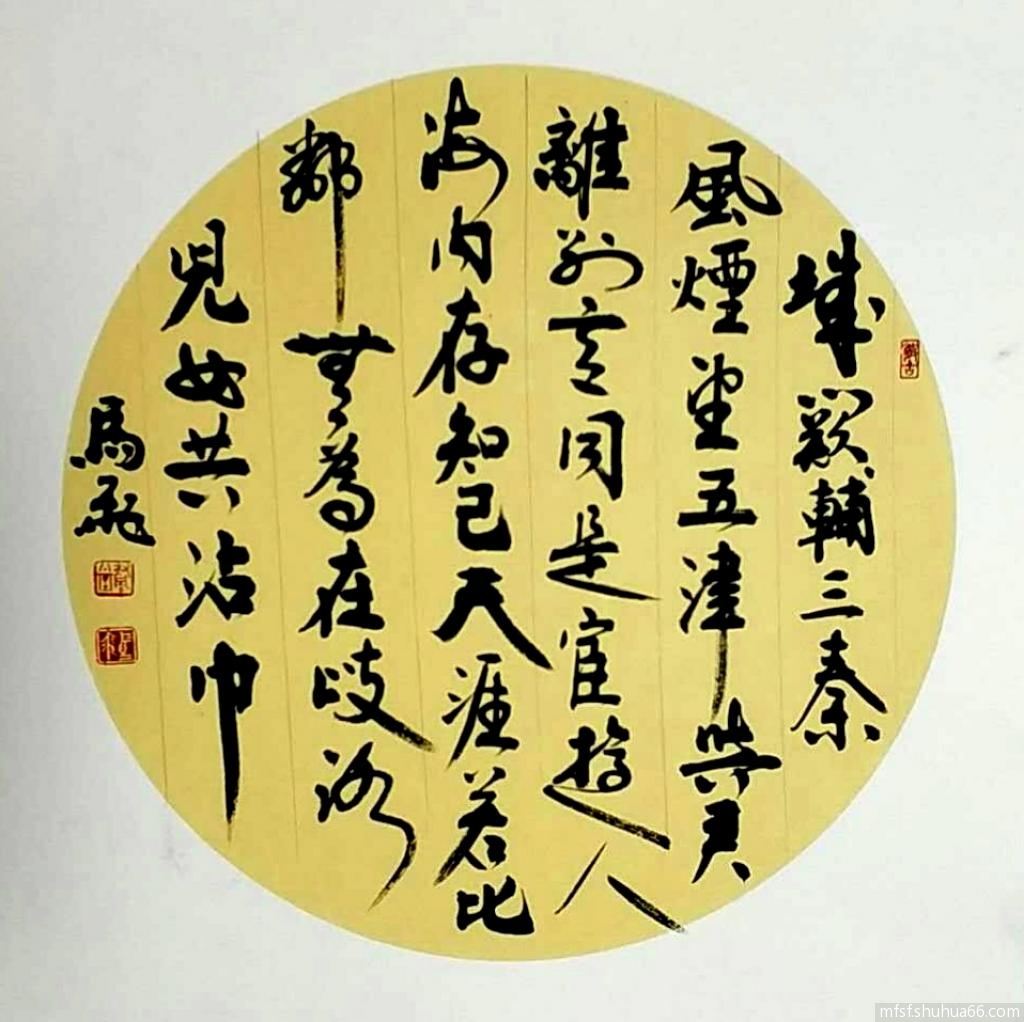 城闕輔三秦
風煙望五津與君
離別意同是宦遊人
海内存知己天涯若比
鄰無為在歧路
兒女共沾巾
馬
mfsf.shuhua66.com